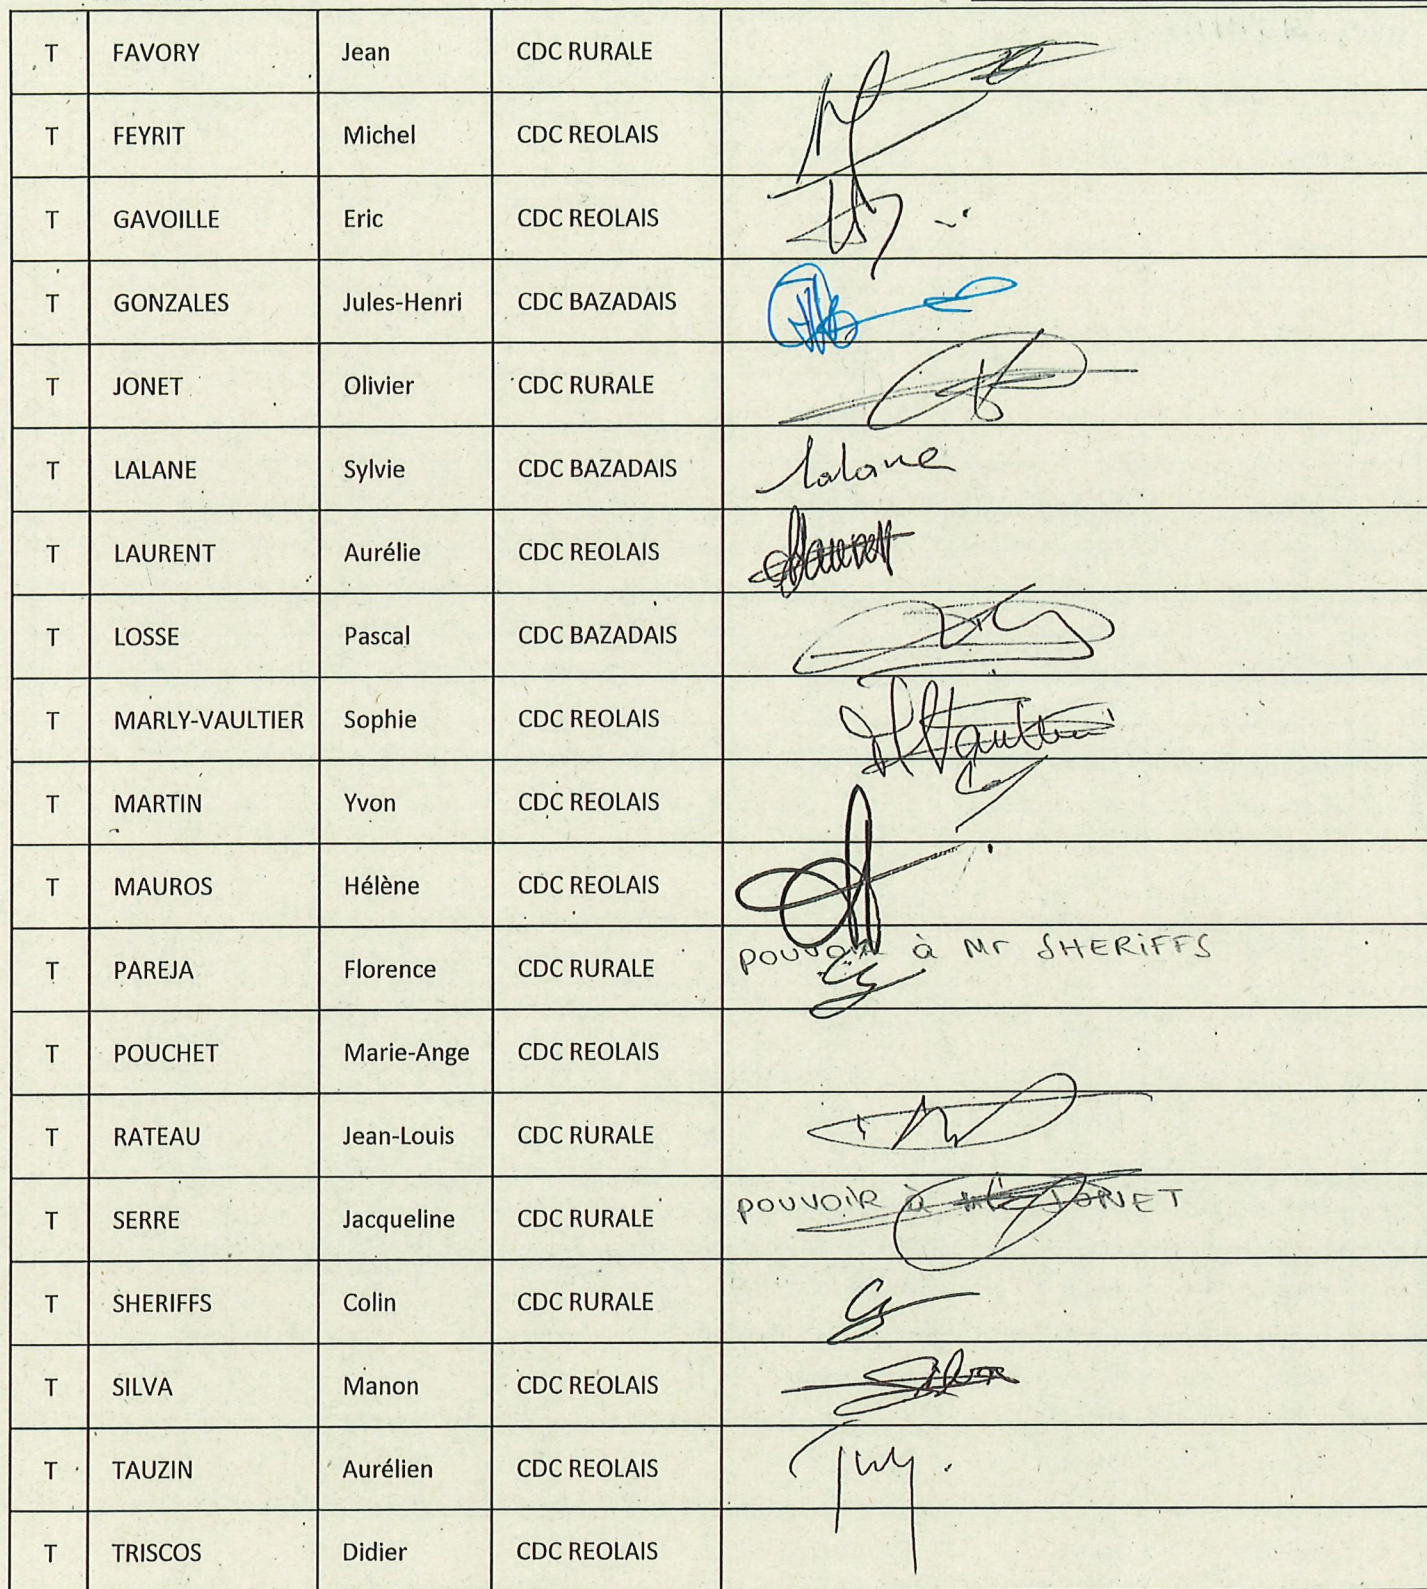 T FAVORY Jean CDC RURALE
T FEYRIT Michel CDC REOLAIS
T GAVOILLE Eric CDC REOLAIS
T GONZALES Jules-Henri CDC BAZADAIS
T JONET Olivier CDC RURALE
T LALANE Sylvie CDC BAZADAIS lalane
T LAURENT Aurélie CDC REOLAIS
T LOSSE Pascal CDC BAZADAIS
T MARLY-VAULTIER Sophie CDC REOLAIS
T MARTIN Yvon CDC REOLAIS
T MAUROS Hélène CDC REOLAIS
T PAREJA Florence CDC RURALE pouvoir à Mr SHERIFFS
T POUCHET Marie-Ange CDC REOLAIS
T RATEAU Jean-Louis CDC RURALE
T SERRE Jacqueline CDC RURALE pouvoir à Mr JONET
T SHERIFFS Colin CDC RURALE
T SILVA Manon CDC REOLAIS Silva
T TAUZIN Aurélien CDC REOLAIS
T TRISCOS Didier CDC REOLAIS